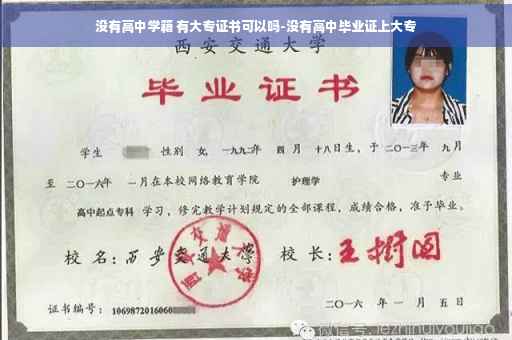 没有高中学籍 有大专证书可以吗-没有高中毕业证上大专
西安交通大学
毕业证书
学生 性别 女,一九九二年 四 月 十八日生,于 二〇一三年 九月
至 二〇一六年 一月在本校网络教育学院 护理学 专业
高中起点专科 学习,修完教学计划规定的全部课程,成绩合格,准予毕业。
校 名:西安交通大学 校 长:王树国
西安交通大学
证书编号:1069872016060
二〇一六 年 一 月 五 日
微信号: